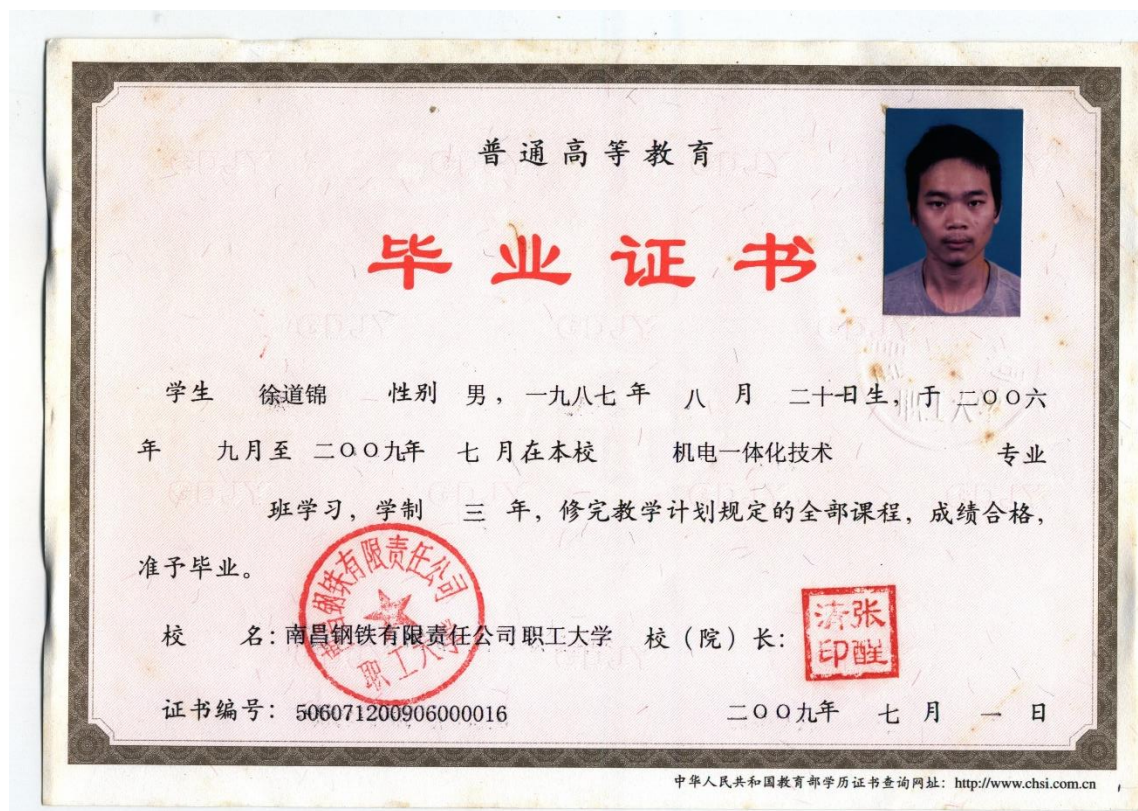 普通高等教育
毕业证书
学生 徐道锦 性别 男，一九八七年 八 月 二十日生，于 二〇〇六
年 九月至 二〇〇九年 七 月在本校 机电一体化技术 专业
班学习，学制 三 年，修完教学计划规定的全部课程，成绩合格，
准予毕业。
南昌钢铁有限责任公司
职工大学
校 名：南昌钢铁有限责任公司职工大学 校（院）长：
张醒清印
证书编号： 506071200906000016 二〇〇九年 七 月 一 日
中华人民共和国教育部学历证书查询网址：http://www.chsi.com.cn